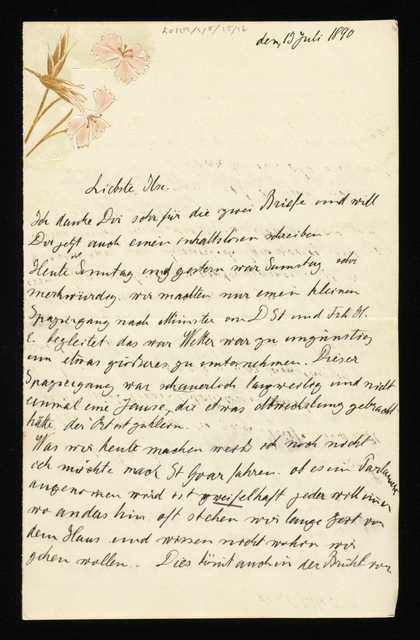 den 13 Juli 1890
Liebste Ilse.
Ich danke Dir sehr für die zwei Briefe und will
Dir jetzt auch einen inhaltslosen schreiben
Heute ist Sonntag und gestern war Samstag sehr
merkwürdig. wir machten nur einen kleinen
Spaziergang nach Münster von D St und
begleitet das war Wetter war zu ungünstig
um etwas größeres zu unternehmen. Dieser
Spaziergang war schauerlich langweilig und nicht
einmal eine Jause, die etwas Abwechslung gebracht
hätte, der Ort ist
Was wir heute machen weiß ich noch nicht
ich möchte nach St Goar fahren. ob es im
angenommen wird ist zweifelhaft jeder will
wo anders hin oft stehen wir lange Zeit vor
dem Haus und wissen nicht wohin wir
gehen wollen. Dies könnt auch in der Brühl